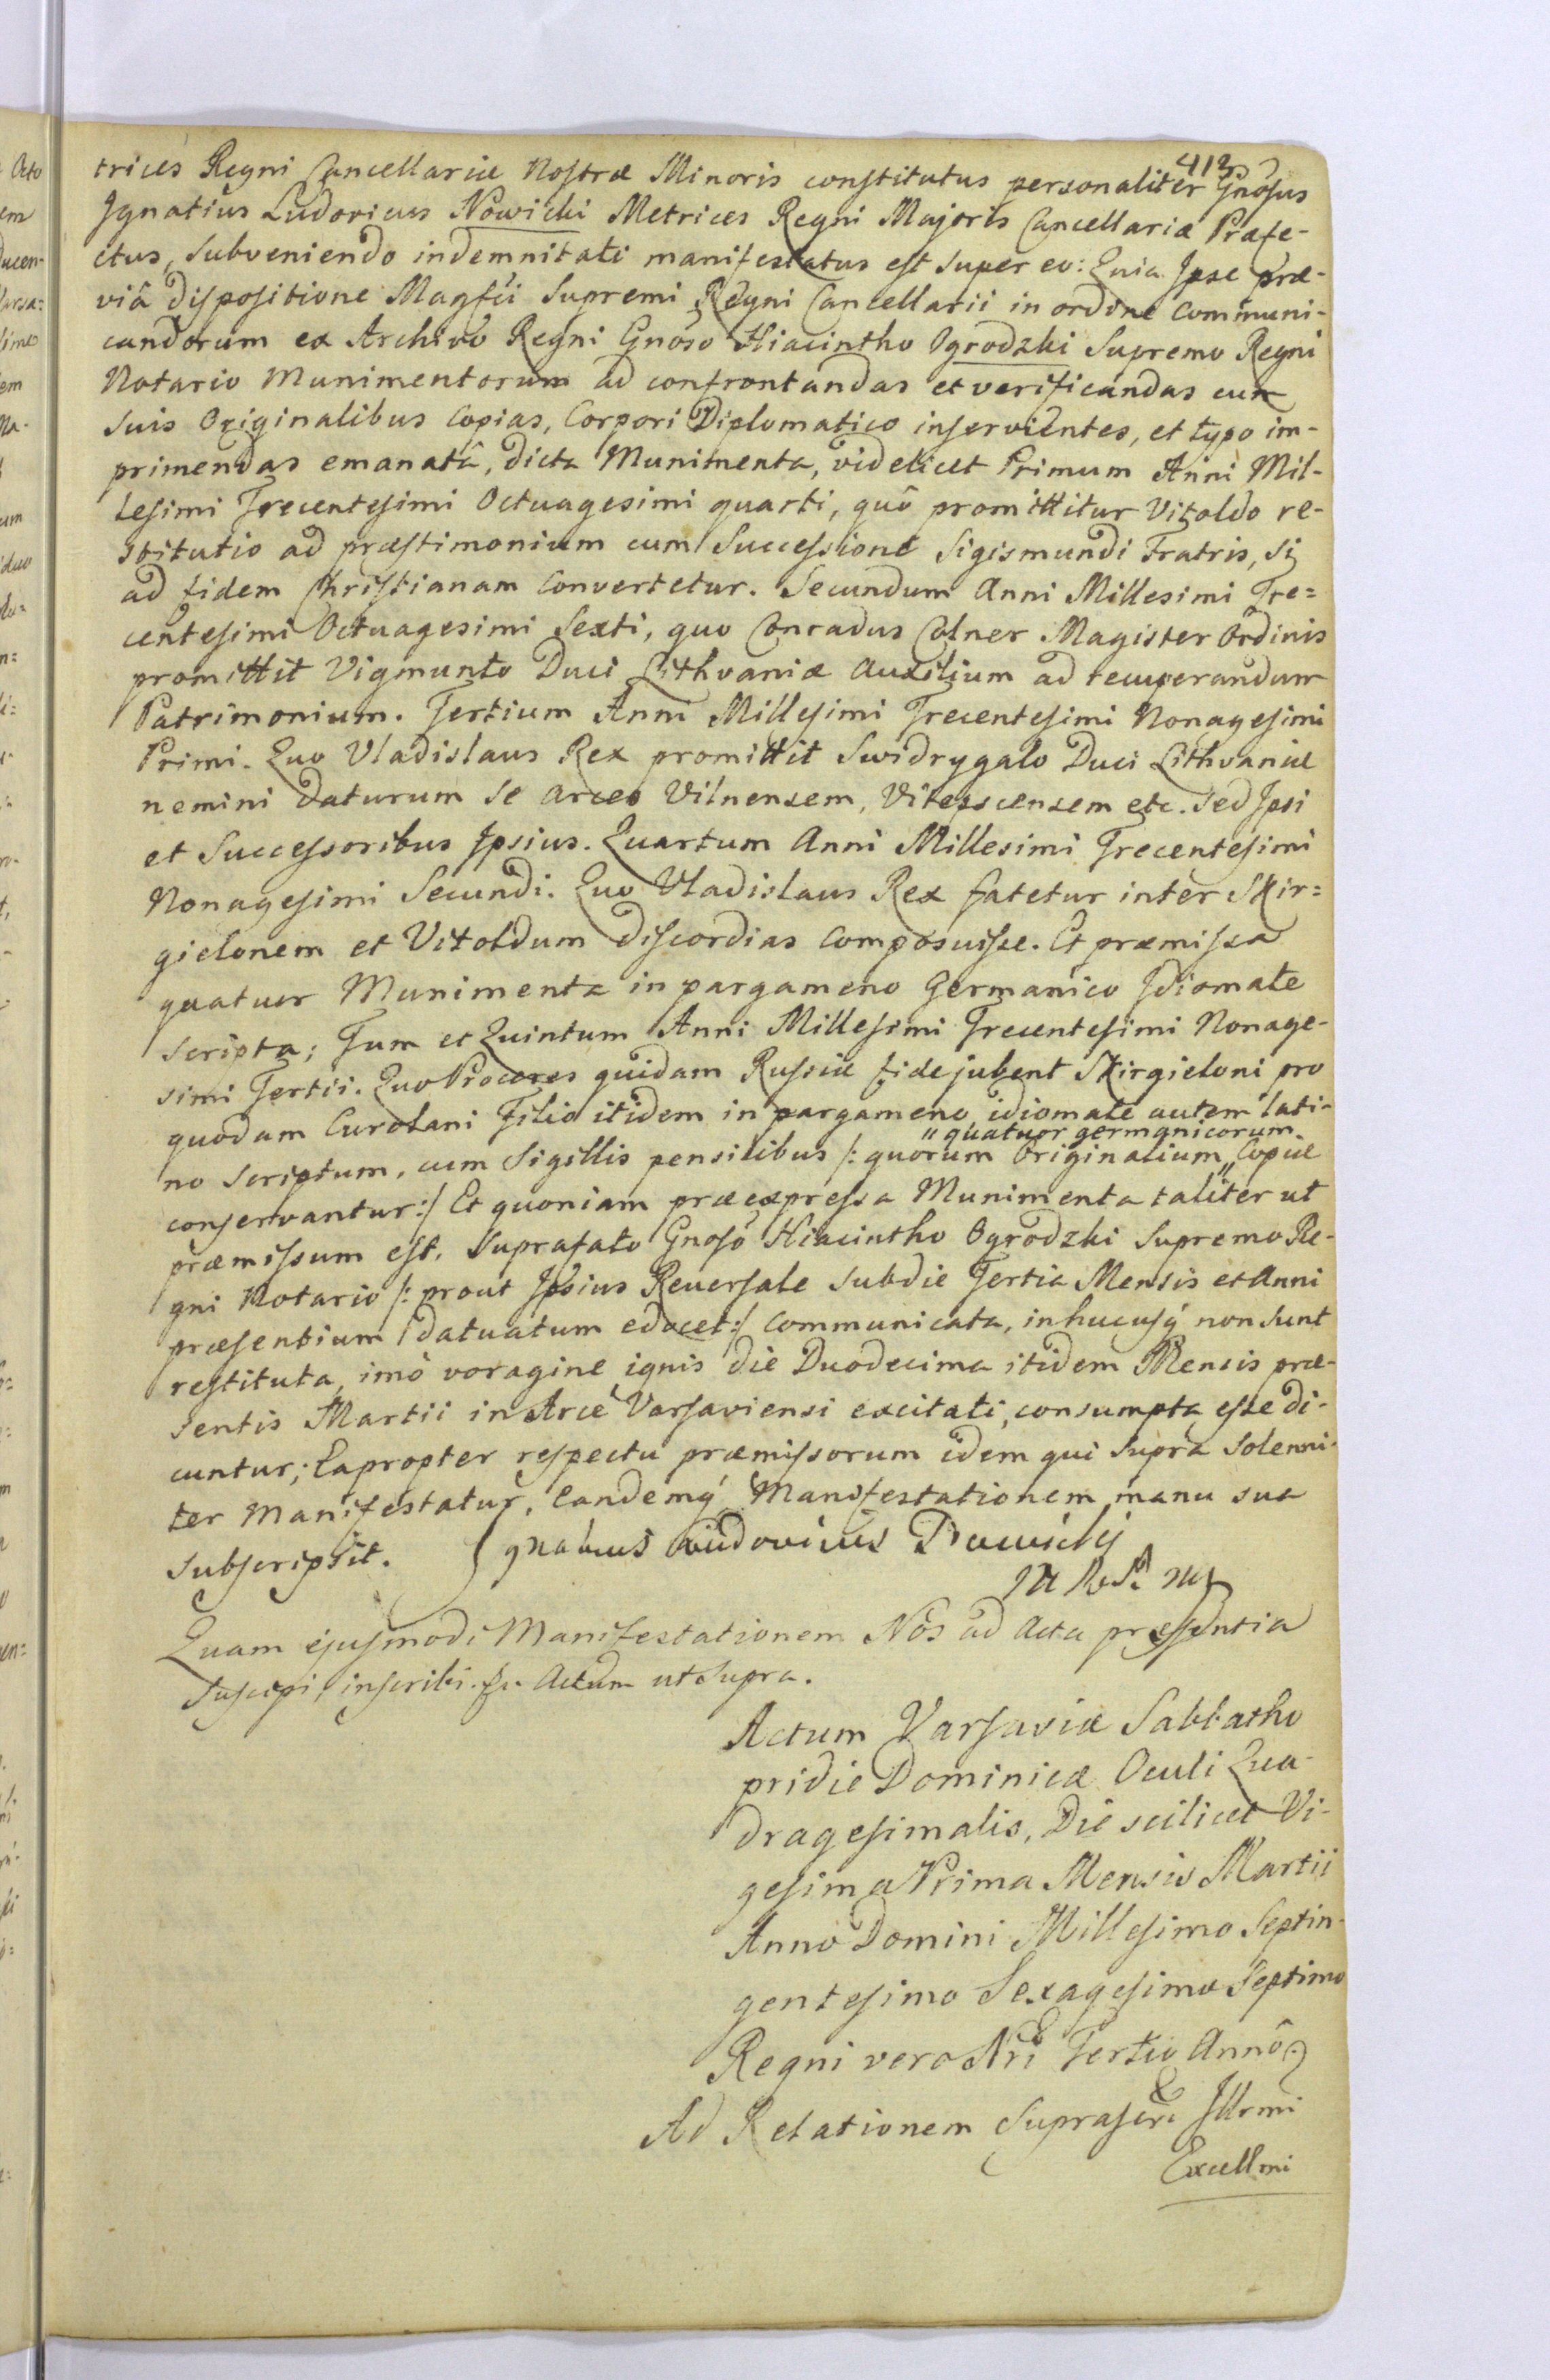 413
trices Regni Cancellariæ Nostræ Minoris constitutus personaliter Gnosus
Ignatius Ludovicus Nowicki Metrices Regni Majoris Cancellariæ Præfe-
ctus, subveniendo indemnitati manifestatus est super eo: Quia Ipse præ-
viâ dispositione Magfci Supremi Regni Cancellarii in ordine Communi-
candorum ex Archivo Regni Gnoso Hiacintho Ogrodzki Supremo Regni
Notario Munimentorum ad confrontandas et verificandas cum
suis Originalibus Copias, Corpori Diplomatico inservientes, et typo im-
primendas emanatâ, dicta Munimenta, videlicet Primum Anni Mil-
lesimi Trecentesimi Octuagesimi quarti, quô promittitur Vitoldo re-
stitutio ad præstimonium cum Successione Sigismundi Fratris, si
ad fidem Christianam Convertetur. Secundum Anni Millesimi Tre=
centesimi Octuagesimi Sexti, quo Conradus Colner Magister Ordinis
promittit Vigmunto Duci Lithvaniæ Auxilium ad recuperandum
Patrimonium. Tertium Anni Millesimi Trecentesimi Nonagesimi
Primi. Quo Vladislaus Rex promittit Swidrygalo Duci Lithvaniæ
nemini daturum se arces Vilnensem, Vitepscensem etc. sed Ipsi
et Successoribus Ipsius. Quartum Anni Millesimi Trecentesimi
Nonagesimi Secundi. Quo Vladislaus Rex fatetur inter Skir=
gielonem et Vitoldum discordias composuisse. Et præmissa
quatuor Munimenta in pargameno Germanico Idiomate
scripta; Tum et Quintum Anni Millesimi Trecentesimi Nonage-
simi Tertii. Quo Proceres quidam Russiæ fidejubent Skirgieloni pro
quodam Curolani Filio itidem in pargameno idiomate autem lati-
"quatuor germanicorum
no scriptum, cum Sigillis pensilibus /: quorum Originalium" Copiæ
conservantur:/ Et quoniam præexpressa Munimenta taliter ut
præmissum est, Suprafato Gnosô Hiacintho Ogrodzki Supremo Re-
gni Notario /: prout Ipsius Reversale sub die Tertia Mensis et Anni
præsentium datuatum edocet:/ communicata, inhucusq́ non sunt
restituta, imò voragine ignis die Duodecima itidem Mensis præ-
sentis Martii in Arce Varsaviensi excitati, consumpta esse di-
cuntur; Eapropter respectu præmissorum idem qui supra Solenni-
ter Manifestatur, Eandemq́ Manifestationem manu sua
subscripsit. Ignatius Ludovicus Nowicki
Quam ejusmodi Manifestationem Nos ad Acta præsentia
suscepi, inscribi fr. Actum ut supra.
Actum Varsaviæ Sabbatho
pridie Dominicæ Oculi Qua-
dragesimalis, Die scilicet Vi-
gesima Prima Mensis Martii
Anno Domini Millesimo Septin-
gentesimo Sexagesimo Septimo
Regni vero Nri Tertio Annô.
Ad Relationem Suprascri Illrmi
Excellmi